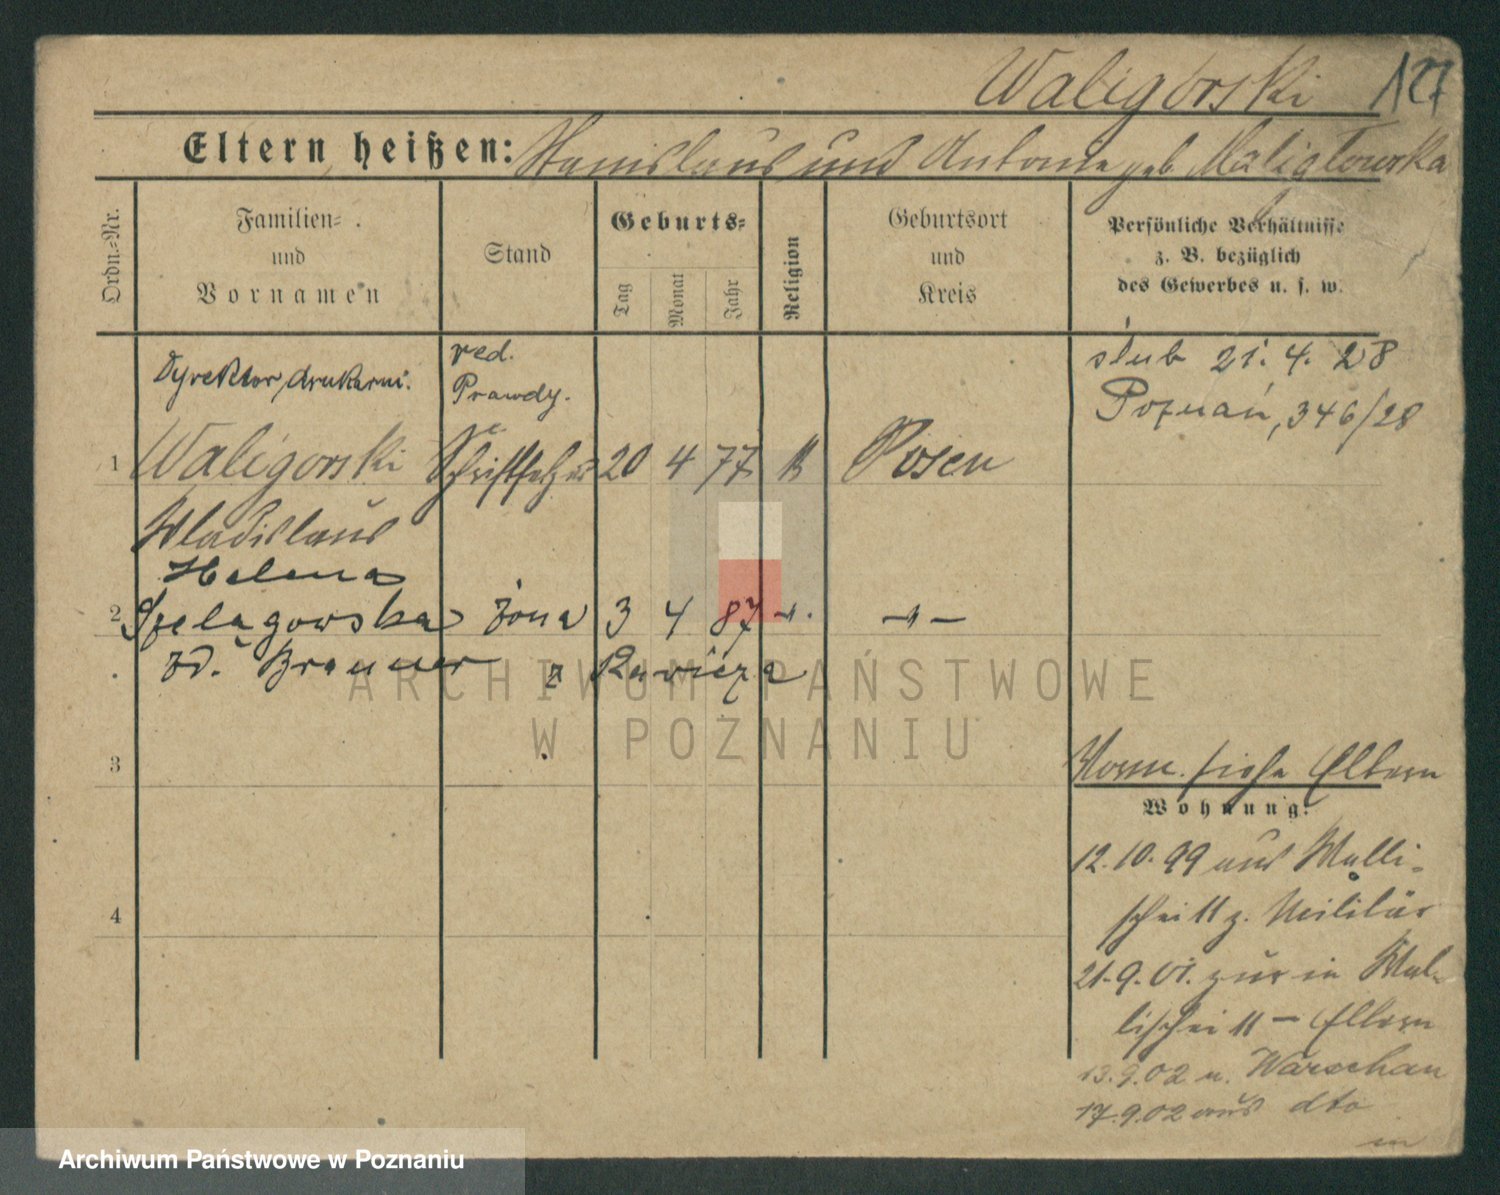 Waligórski 127
Eltern heißen: Stanislaus und Antonie geb. Maligłowska
Ordn.=Nr.
Familien= und Vornamen
Stand
Geburts=
Tag
Monat
Jahr
Religion
Geburtsort und Kreis
Persönliche Verhältnisse
z. B. bezüglich
des Gewerbes u. s. w.
Dyrektor drukarni.
red.
Prawdy.
ślub 21. 4. 28
Poznań, 346/28
1 Waligorski Schriftsetzer 20 4 77 k Posen
Wladislaus
Helena
2 Szelągowska żona 3 4 87 -"- -"-
zd. Brauner z Rawicza
3
4
Vorm. siehe Eltern
Wohnung:
12.10.99 aus Walli-
schei 11 z. Militär
21.9.01. zur in Wal-
lischei 11 - Eltern
13.9.02 n. Warschau
17.9.02 aus dto
ARCHIWUM PAŃSTWOWE
W POZNANIU
Archiwum Państwowe w Poznaniu